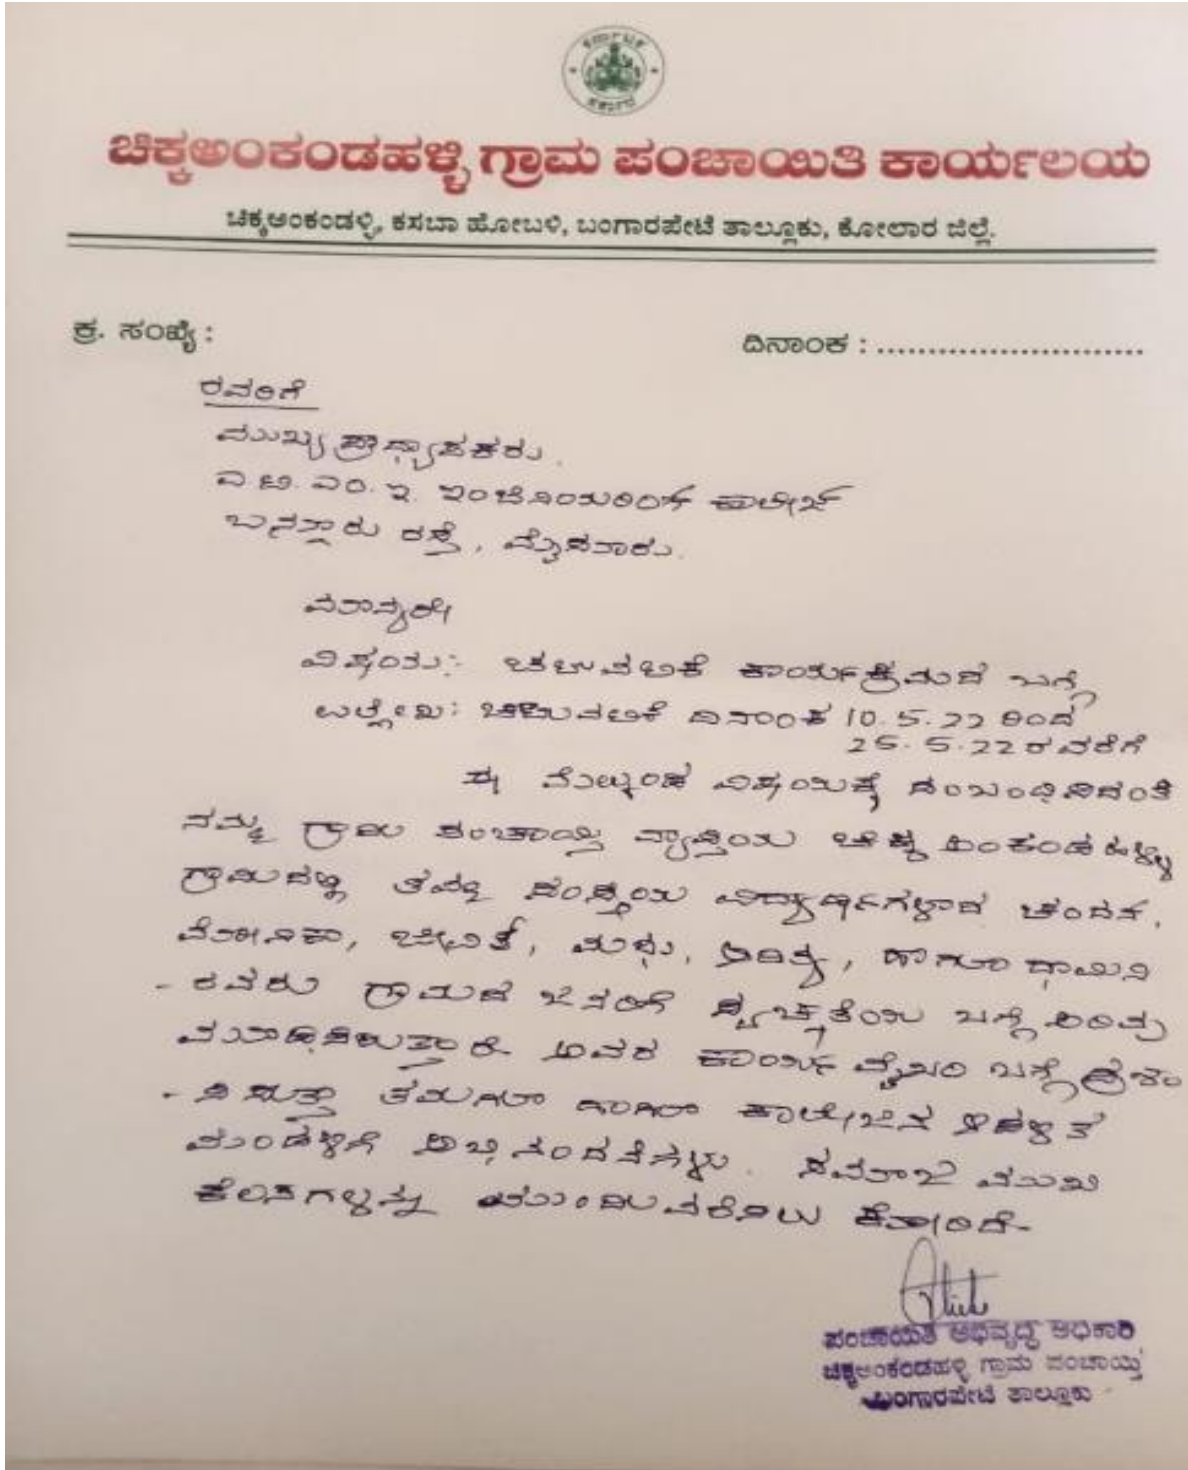 ಕರ್ನಾಟಕ
ಸರ್ಕಾರ
ಚಿಕ್ಕಅಂಕಂಡಹಳ್ಳಿ ಗ್ರಾಮ ಪಂಚಾಯಿತಿ ಕಾರ್ಯಲಯ
ಚಿಕ್ಕಅಂಕಂಡಳ್ಳಿ, ಕಸಬಾ ಹೋಬಳಿ, ಬಂಗಾರಪೇಟೆ ತಾಲ್ಲೂಕು, ಕೋಲಾರ ಜಿಲ್ಲೆ.
ಕ್ರ. ಸಂಖ್ಯೆ :
ದಿನಾಂಕ : ..........................
ರವರಿಗೆ
ಮುಖ್ಯ ಪ್ರಾಧ್ಯಾಪಕರು.
ಎ.ಟಿ.ಎಂ.ಇ. ಇಂಜಿನಿಯರಿಂಗ್ ಕಾಲೇಜ್
ಬನ್ನೂರು ರಸ್ತೆ, ಮೈಸೂರು.
ಮಾನ್ಯರೇ
ವಿಷಯ: ಚಟುವಟಿಕೆ ಕಾರ್ಯಕ್ರಮದ ಬಗ್ಗೆ
ಉಲ್ಲೇಖ: ಚಟುವಟಿಕೆ ದಿನಾಂಕ 10.5.22 ರಿಂದ
25.5.22 ರವರೆಗೆ
ಈ ಮೇಲ್ಕಂಡ ವಿಷಯಕ್ಕೆ ಸಂಬಂಧಿಸಿದಂತೆ
ನಮ್ಮ ಗ್ರಾಮ ಪಂಚಾಯ್ತಿ ವ್ಯಾಪ್ತಿಯ ಚಿಕ್ಕ ಅಂಕಂಡಹಳ್ಳಿ
ಗ್ರಾಮದಲ್ಲಿ ತಮ್ಮ ಸಂಸ್ಥೆಯ ವಿದ್ಯಾರ್ಥಿಗಳಾದ ಚಂದನ,
ಮೋನಿಕಾ, ಜೀವಿತ, ಮಧು, ಆದಿತ್ಯ, ಹಾಗೂ ಧಾಮಿನಿ
- ರವರು ಗ್ರಾಮದ ಜನರಿಗೆ ಸ್ವಚ್ಛತೆಯ ಬಗ್ಗೆ ಅರಿವು
ಮೂಡಿಸಿರುತ್ತಾರೆ. ಅವರ ಕಾರ್ಯ ವೈಖರಿ ಬಗ್ಗೆ ಪ್ರಶಂ
- ಸಿಸುತ್ತಾ ತಮಗೂ ಹಾಗೂ ಕಾಲೇಜಿನ ಆಡಳಿತ
ಮಂಡಳಿಗೆ ಅಭಿನಂದನೆಗಳು. ಸಮಾಜ ಮುಖಿ
ಕೆಲಸಗಳನ್ನು ಮುಂದುವರೆಸಲು ಕೋರಿದೆ-
ಪಂಚಾಯಿತಿ ಅಭಿವೃದ್ಧಿ ಅಧಿಕಾರಿ
ಚಿಕ್ಕಅಂಕಂಡಹಳ್ಳಿ ಗ್ರಾಮ ಪಂಚಾಯ್ತಿ
ಬಂಗಾರಪೇಟೆ ತಾಲ್ಲೂಕು